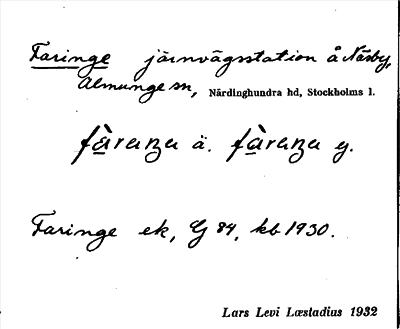 Faringe järnvägsstation å Näsby,
Almunge sn, Närdinghundra hd, Stockholms l.
fàraŋa ä. fàraŋa y.
Faringe ek, G 84, kb 1930.
Lars Levi Læstadius 1932